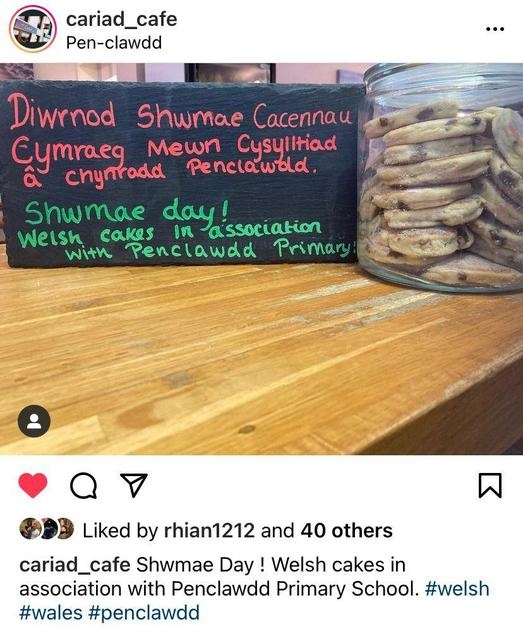 cariad_cafe
Pen-clawdd
Diwrnod Shwmae Cacennau
Cymraeg Mewn Cysylltiad
â Chynradd Penclawdd.
Shwmae day!
Welsh cakes in association
with Penclawdd Primary!
Liked by rhian1212 and 40 others
cariad_cafe Shwmae Day ! Welsh cakes in
association with Penclawdd Primary School. #welsh
#wales #penclawdd